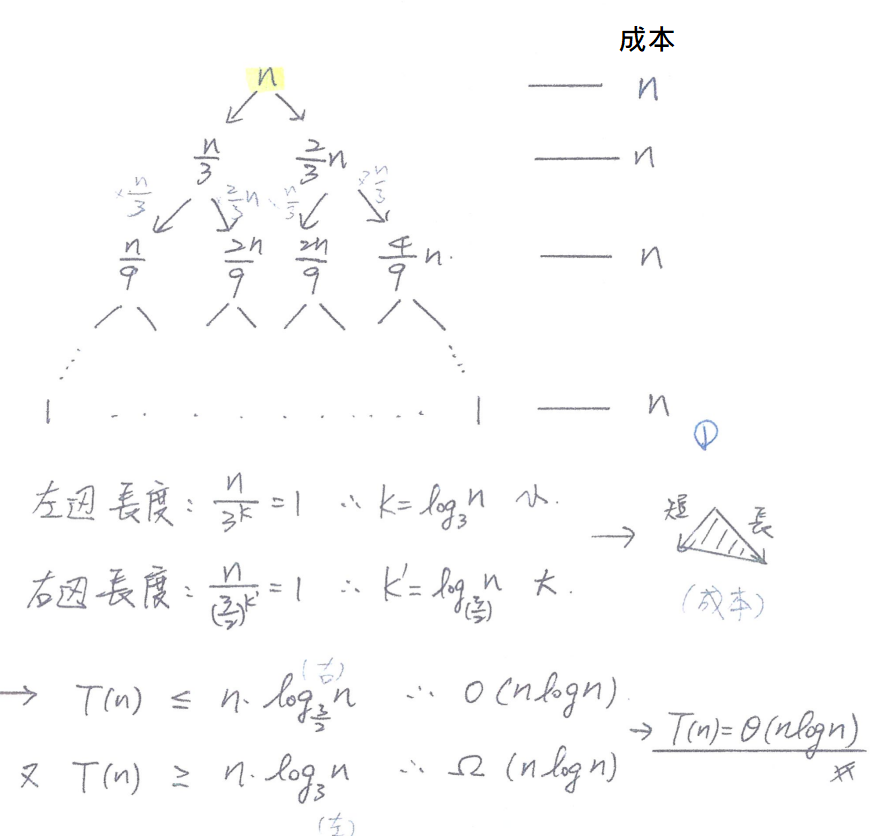 成本
n —— n
n/3 2/3 n —— n
×n/3 2/3 n ×n/3 ×2n/3
n/9 2n/9 2n/9 4/9 n. —— n
1 . . . . . . . . . . 1 —— n
①
左边長度: n/3^k = 1 ∴ k = log₃n 小.
→ 短 長
右边長度: n/(3/2)^k' = 1 ∴ k' = log_(3/2) n 大.
(成本)
(右)
→ T(n) ≤ n. log_(3/2) n ∴ O(nlogn)
→ T(n) = θ(nlogn)
又 T(n) ≥ n. log₃n ∴ Ω(nlogn)
(左)